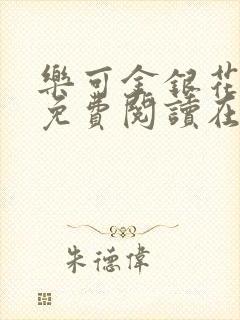 樂可金銀花
免費閱讀在
朱德偉